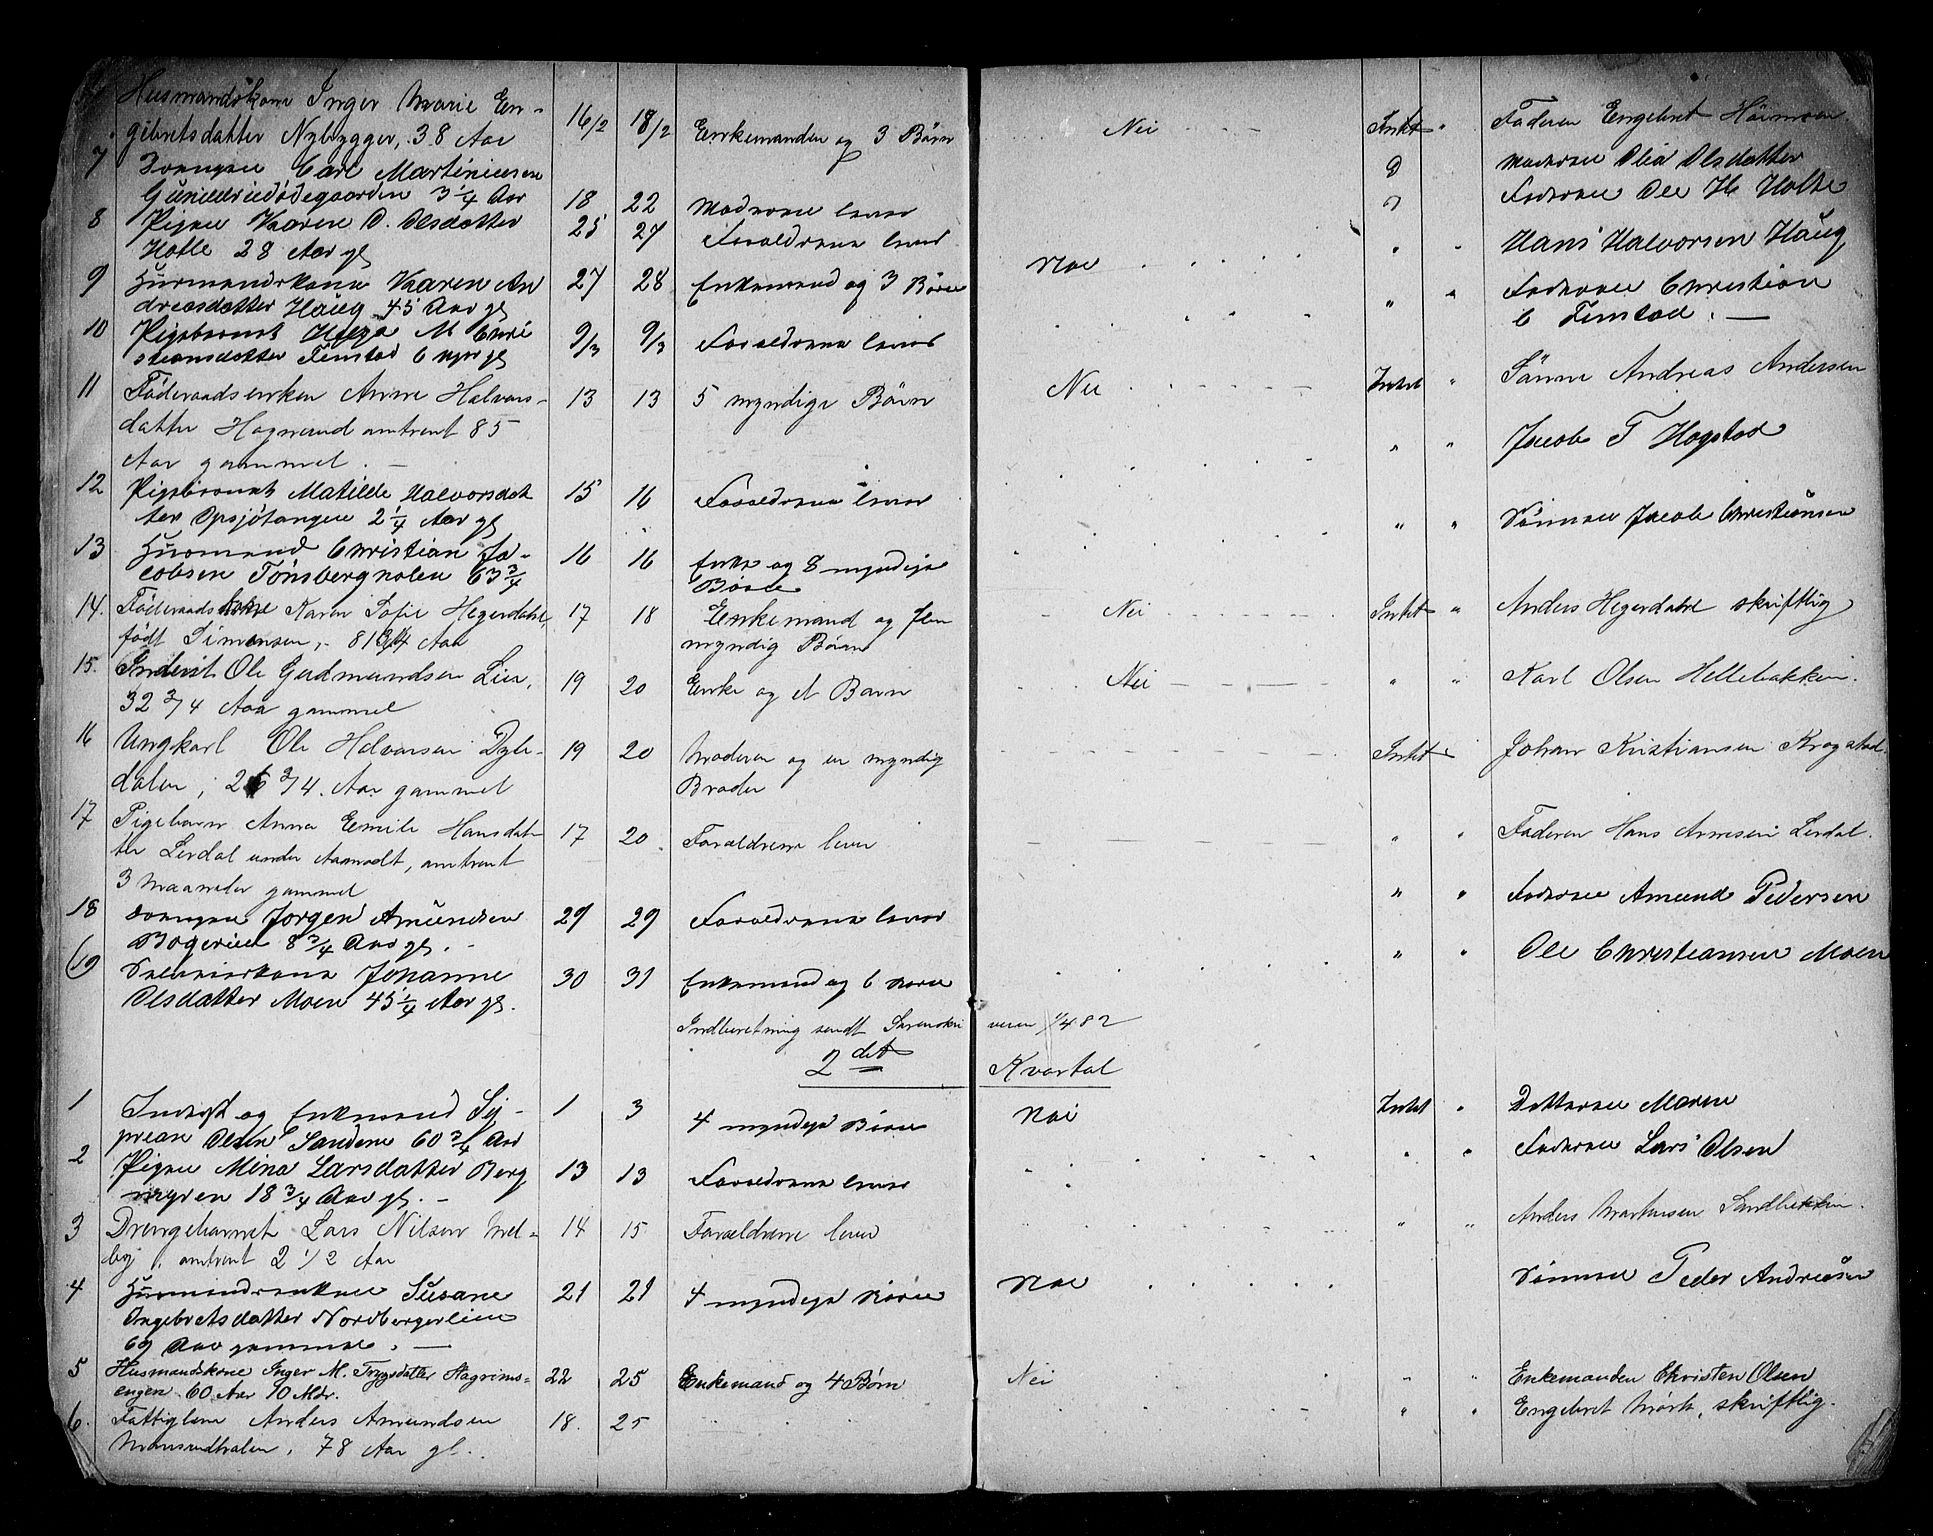 Husmandskone Inger Marie En-
gebretsdatter Nybygger, 38 Aar 16/2 18/2 Enkemanden og 3 Børn Nei Intet " Faderen Engebret
7 Drengen Carl Martiniusen
Gunildrudødegaarden 3 1/4 Aar 18 22 Moderen lever Moderen Olia Olsdatter
8 Pigen Karen O. Olsdatter
Holte 28 Aar gl 25 27 Forældrene lever Faderen Ole H. Holte
9 Husmandskone Karen An
dreasdatter Haug 45 Aar gl 27 28 Enkemand og 3 Børn Nei " " Hans Halvorsen Haug
10 Pigebarnet Helga M Chri
stiansdatter Finstad 6 Uger gl 9/3 9/3 Forældrene lever " " Faderen Christian
C Finstad. —
11 Føderaadsenken Anne Halvors-
datter Hagnæud omtrent 85
Aar gammel. — 13 13 5 myndige Børn Nei Intet " Sønnen Andreas Andersen
12 Pigebarnet Matilde Halvorsdat
ter Opsjøtangen 2 1/4 Aar gl 15 16 Forældrene lever " " Jacob T Hogstad
13 Husmand Christian Ja-
cobsen Tønsbergholen 63 3/4 16 16 Enke og 8 myndige
Børn " " Sønnen Jacob Christiansen
14. Føderaadskone Karen Sofie Hegerdahl,
født Simensen, 81 3/4 Aar 17 18 Enkemand og flere
myndig Børn Nei Intet " Anders Hegerdahl skriftlig
15. Inderst Ole Gudmundsen Lien,
32 3/4 Aar gammel 19 20 Enke og et Barn Nei " " Karl Olsen Hellebakken.
16 Ungkarl Ole Halvorsen Dyle-
dalen, 26 3/4. Aar gammel 19 20 Moderen og en myndig
Broder Intet " Johan Kristiansen Krogstad.
17 Pigebarn Anna Emilie Hansdat-
ter Lerdal under Aamodt, omtrent
3 Maaneder gammel 17 20 Forældrene lever " " Faderen Hans Arnesen Lerdal.
18 Drengen Jørgen Amundsen
Bøgerud 8 3/4 Aar gl. - 29 29 Forældrene lever " " Faderen Amund Pedersen
19 Johanne
Olsdatter Moen 45 1/4 Aar gl. 30 31 Enkemand og 6 Børn " " Ole Christiansen Moen
Indberetning sendt Sorenskri veren 1/4 82
2det Kvartal
1 Inderst og Enkemand Sy-
prian Olsen Sandene 60 3/4 Aar 1 3 4 myndige Børn Nei Intet " Datteren Maren
2 Pigen Mina Larsdatter Berg
myren 18 3/4 Aar gl. - 13 13 Forældrene lever " " Faderen Lars Olsen
3 Drengebarnet Lars Nilsen Mel-
by, omtrent 2 1/2 Aar 14 15 Forældrene lever " " Anders Martinsen Sandbækken.
4 Husmandsenken Susane
Ingebretsdatter Nordbergerlien
69 Aar gammel. — 21 21 4 myndige Børn Nei Sønnen Peder Andreasen
5 Husmandskone Inger M. Trygsdatter Hagrims-
engen 60 Aar 10 Mdr. 22 25 Enkemand og 4 Børn Nei " " Enkemanden Christen Olsen
6. Fattiglem Anders Amundsen
78 Aar gl. 18. 25 " " Engebret Mørk, skriftlig.